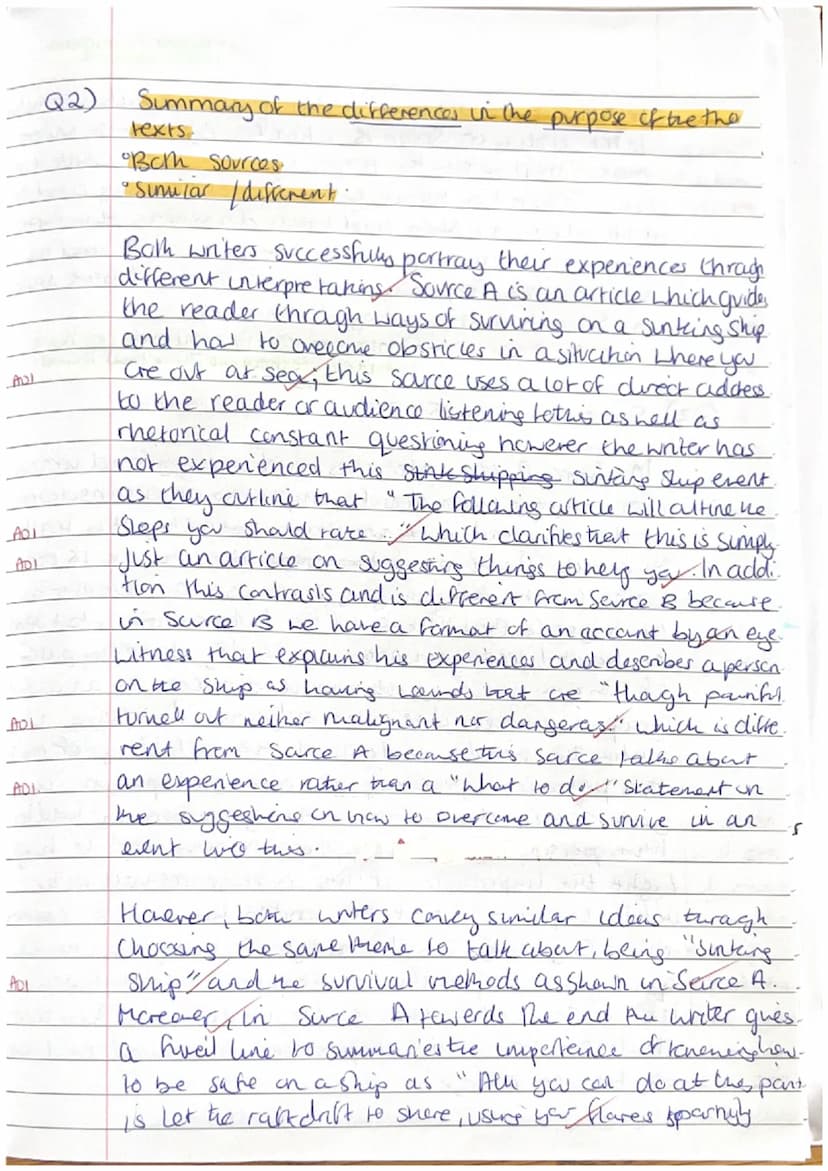 Q2) Summary of the differences in the purpose of the the
texts.
°Both sources
°similar / different.
Both writers successfully portray their experiences through
different interpretations. Source A is an article which guides
the reader through ways of surviving on a sinking ship
and has to overcome obsticles in a situation where you
AO1 are out at sea; this source uses a lot of direct address
to the reader or audience listening to this as well as
rhetorical constant questioning however the writer has
not experienced this sinking ship event
as they outline that "The following article will outline the
AO1 steps you should take." which clarifies that this is simply
AO1 just an article on suggesting things to help you. In addi-
tion this contrasts and is different from Source B because
in Source B we have a format of an account by an eye
witness that explains his experiences and describes a person
on the ship as having wounds that are "though painful
AO1 turned out neither malignant nor dangerous." which is diffe-
rent from Source A because this source talks about
AO1 an experience rather than a "what to do" statement on
the suggestions on how to overcome and survive in an 5
event like this.
However, both writers convey similar ideas through
Choosing the same theme to talk about, being "sinking
AO1 ship" and the survival methods as shown in Source A.
Moreover, in Source A towards the end the writer gives
a line to the of knowing how
to be safe on a ship as "All you can do at this point
is let the raft drift to shore, using your flares sparingly